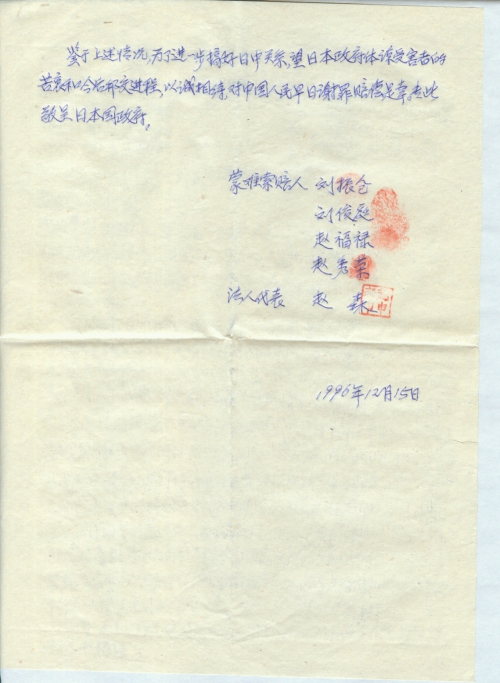 鉴于上述情况,为了进一步搞好日中关系,望日本政府体谅受害者的
苦衷和今后邦交进程,以诚相待,对中国人民早日谢罪赔偿是幸。专此
敬呈日本国政府。
蒙难索赔人 刘振仓
刘俊庭
赵福禄
赵秀荣
法人代表 赵森
1996年12月15日